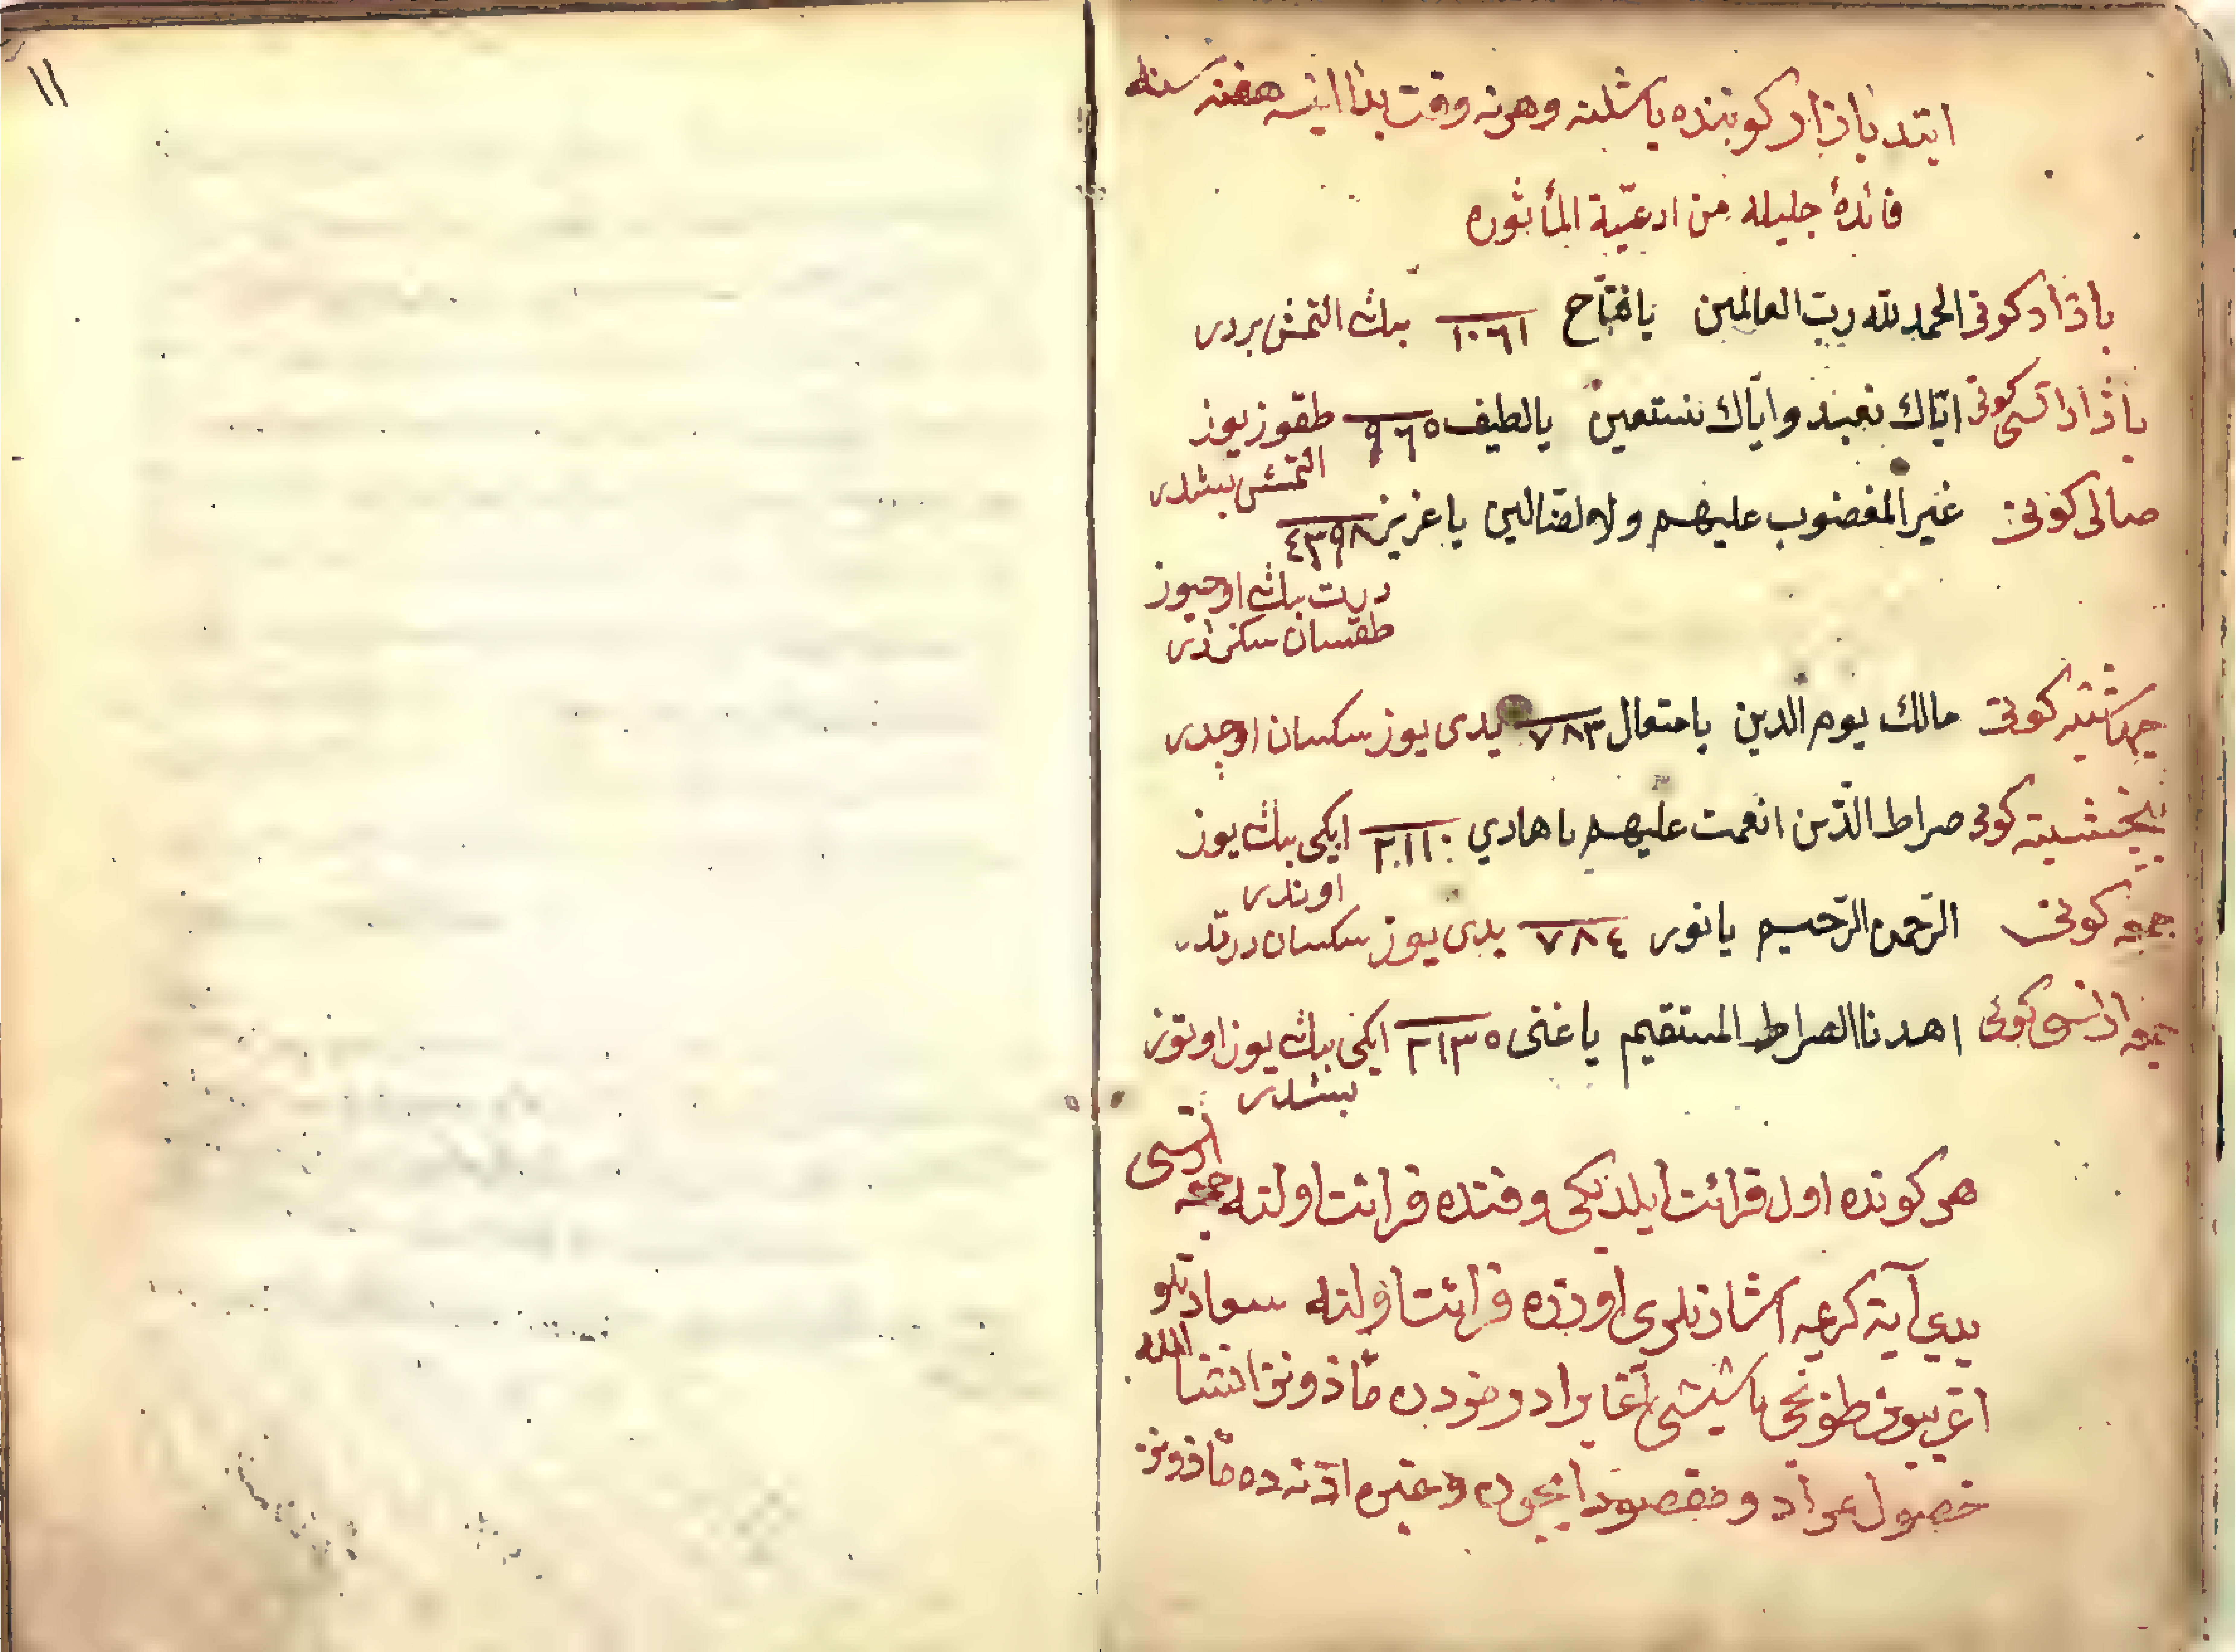 ابتد بازار كوننده باشلنه وهرنه وقت بدأ اينسه هفته سنده
فائدهٔ جليله من ادعيّة المأثوره
بازار كونی الحمد لله ربّ العالمين يا فتّاح ١٠٦١ بيك التمش بردر
بازار ارتسی كونی ايّاك نعبد واياك نستعين يا لطيف ٩٦٥ طقوز يوز
التمش بيشدر
صالی كونی غير المغضوب عليهم ولا لضالين يا عزيز ٤٣٩٨
درت بيك اوچيوز
طقسان سكزدر
چهارشنبه كونی مالك يوم الدين يا متعال ٧٨٣ يدی يوز سكسان اوچدر
پنجشنبه كونی صراط الّذين انعمت عليهم يا هادي ٢١١٠ ايكی بيك يوز
اوندر
جمعه كونی الرّحمن الرّحيم يا نور ٧٨٤ يدی يوز سكسان درتدر
جمعه ارتسی كونی اهدنا الصراط المستقيم يا غنی ٢١٣٥ ايكی بيك يوز اوتوز
بشدر
هر كونده اول قرائت ايلديكی وقتده قرائت اولنه جمعه ارتسی
يدی آية كريمه اشارتلری اوزره قرائت اولنه سعادتلو
اغريبوز باشيسی آغا برادرمزدن مأذونز انشا الله
حصول مراد و مقصود ايچون وغيره اذنده مأذونز
١١